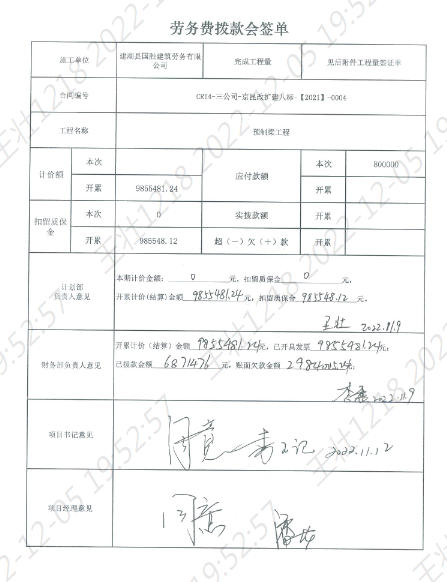 劳务费拨款会签单
施工单位 建湖县国胜建筑劳务有限公司 完成工程量 见后附件工程量签证单
合同编号 CR14-三公司-京昆改扩建八标-【2021】-0004
工程名称 预制梁工程
计价额 本次 应付款额 本次 800000
开累 9855481.24 开累
扣留质保金 本次 0 实拨款额 开累
开累 985548.12 超（一）欠（+）款 开累
计划部负责人意见
本期计价金额： 0 元，扣留质保金 0 元，
开累计价(结算)金额 9855481.24元，扣留质保金 985548.12 元。
王壮 2022.11.9
财务部负责人意见
开累计价（结算）金额 9855481.24元，已开具发票 9855481.24元；
已拨款金额 6871476 元，账面欠款金额 2984005.24元；
2022.11.9
项目书记意见
同意 2022.11.12
项目经理意见
同意
王壮1218 2022-12-05 19:52:57